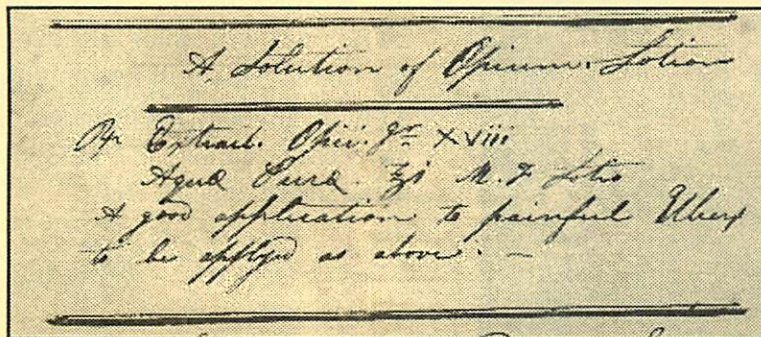 A Solution of Opium. Lotion
℞ Extract. Opii. gr XVIII
Aqua Pura. ℥i M. F Lotio
A good application to painful Ulcers
to be applyd as above. —